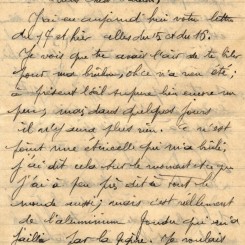 J'ai eu aujourd'hui votre lettre
du 17 et hier celles du 15 et du 16.
Je vois que tu avais l'air de te biler
pour mes brûlures, oh ce n'a rien été ; 
à présent l'œil suppure bien encore un
peu, mais dans quelques jours
il n'y aura plus rien. Ce n'est
point une étincelle qui m'a brûlé,
j'ai dit cela sur le moment et
j'ai à peu près dit à tout le
monde aussi ; mais c'est réellement
de l'aluminium fondu qui m'a
jailli par la Je voulais